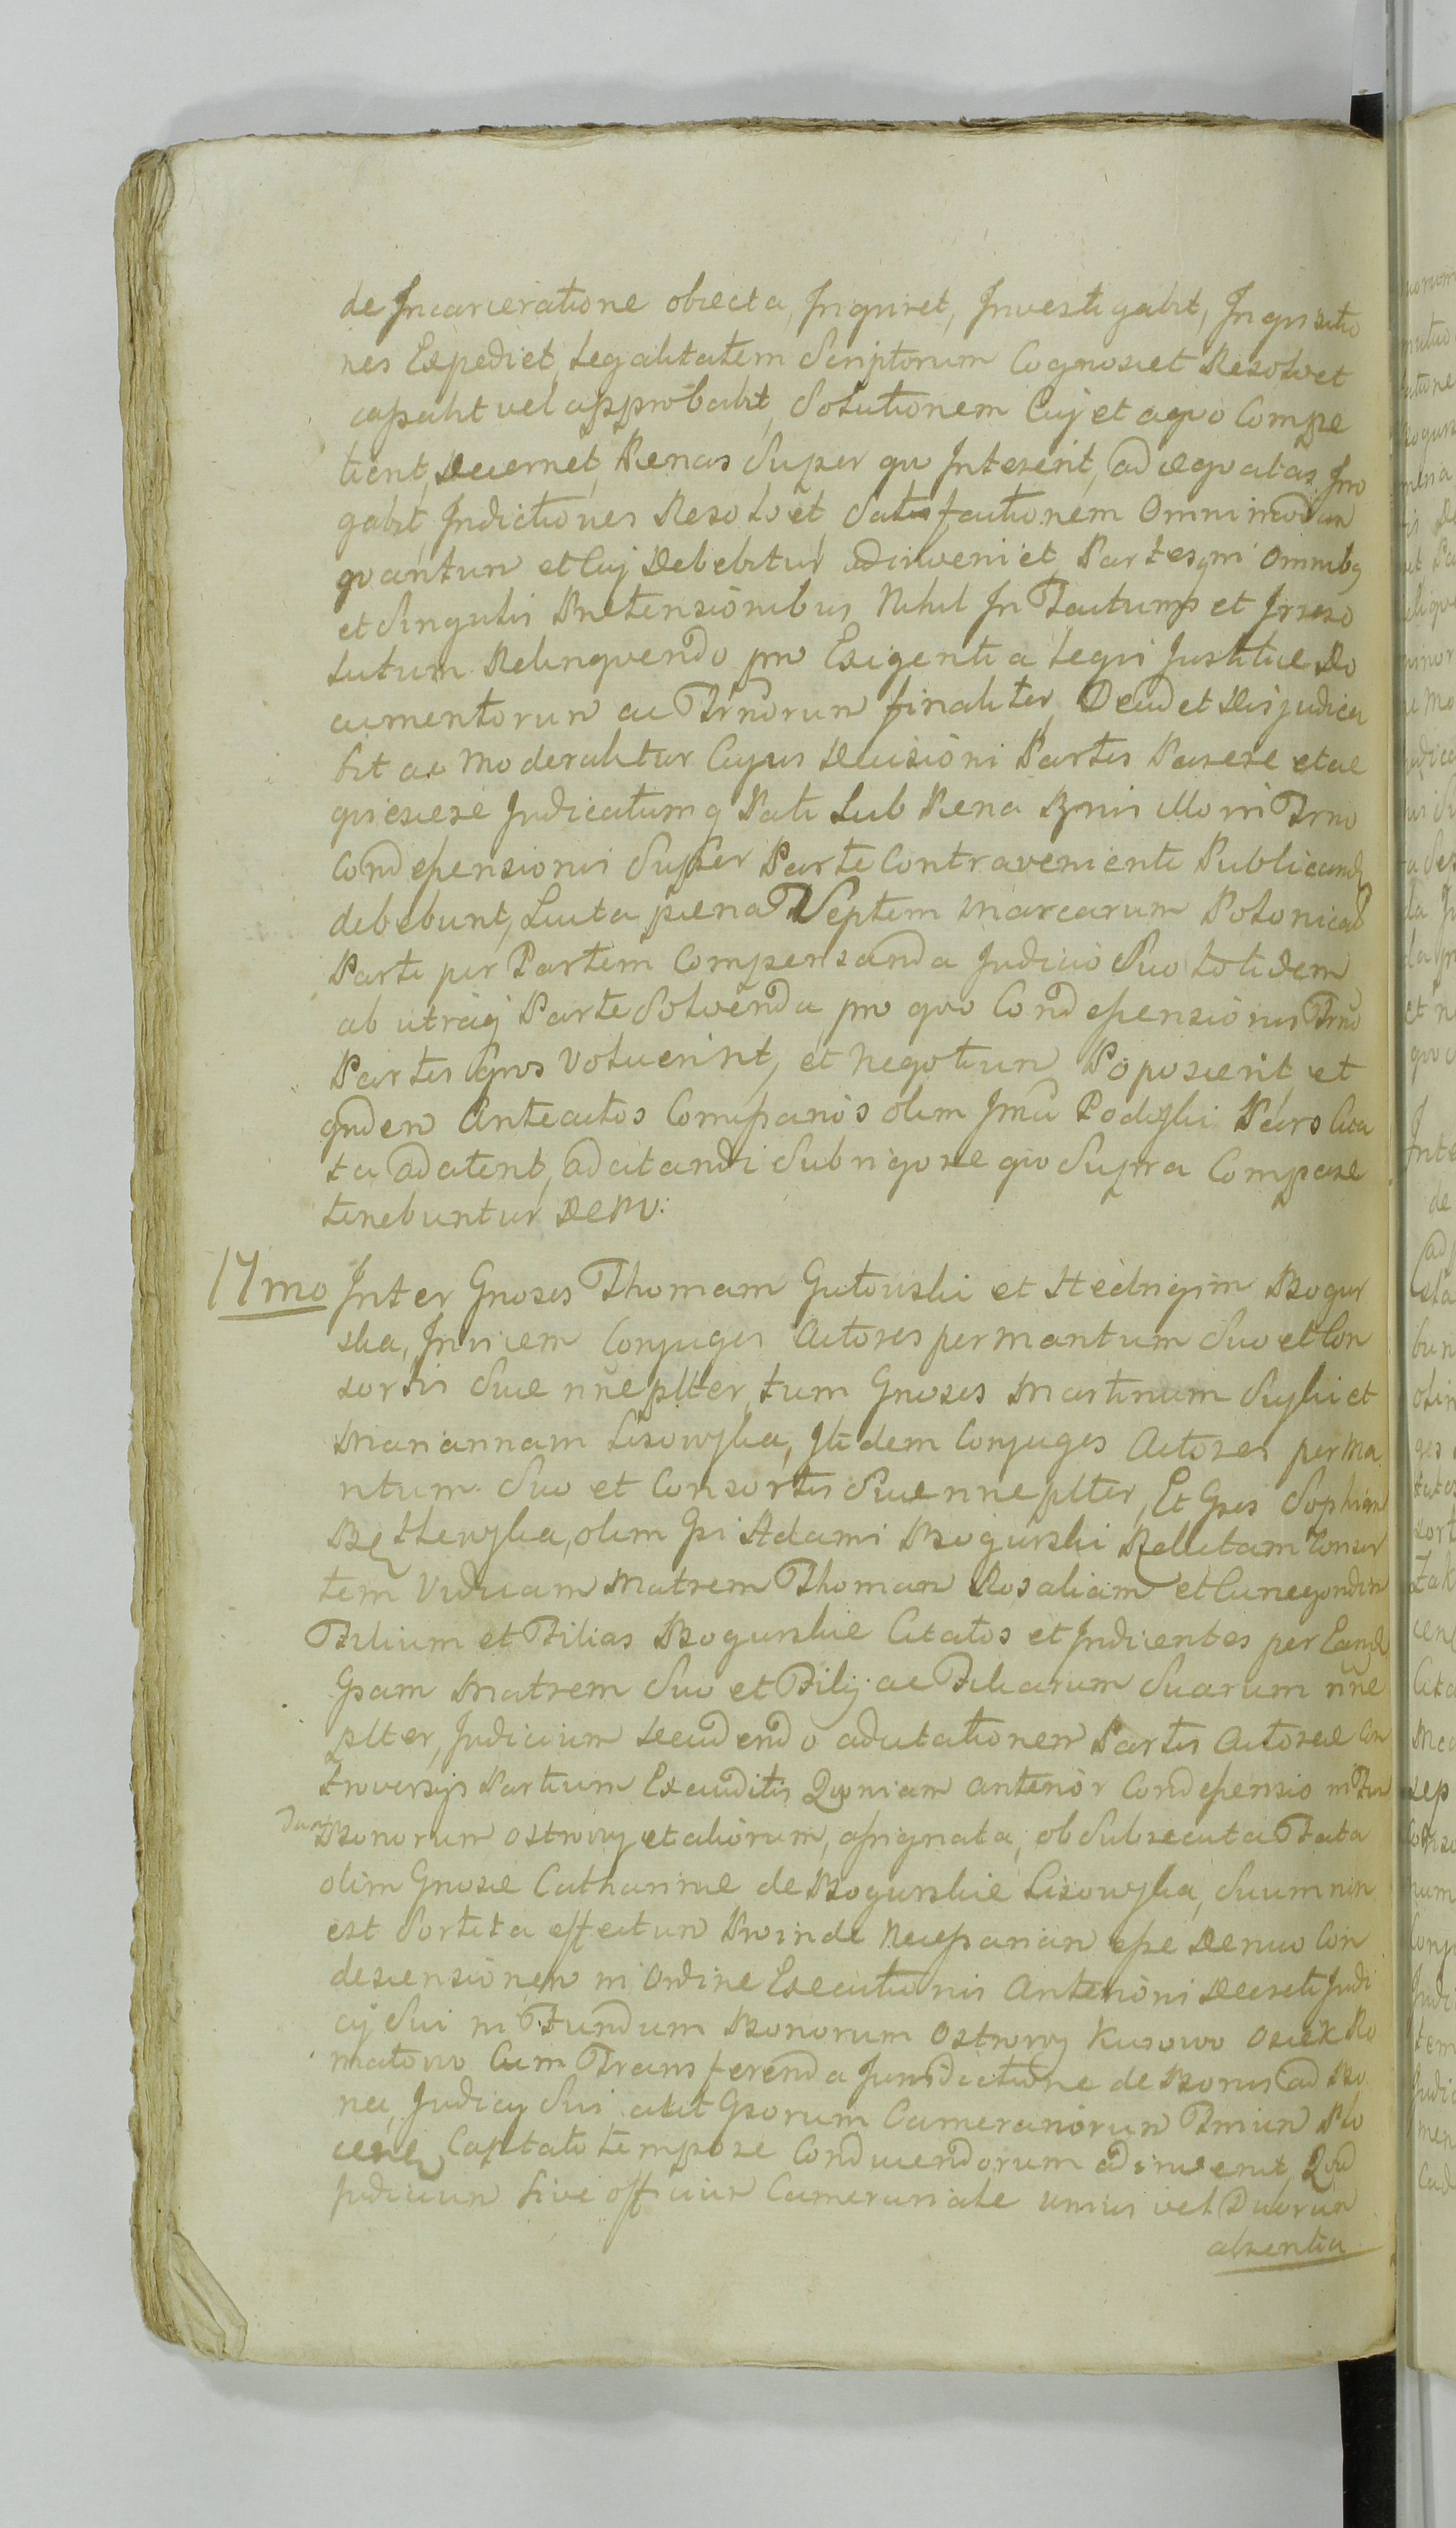 de Incarceratione obiecta, Inquiret, Investigabit, Inquisitio
nes Expediet, Legalitatem Scriptorum Cognoscet Resolvet
cassabit vel approbabit, Solutionem Cuj et a quo Compe
tient, Decernet, Pænas Super qu Inteserit, adæquatas Irro
gabit, Indictiones Resolvet Satisfactionem Omnimodam
quantun et Cuj Debebitur adinveniet Partesq in Omnibq
et Singulis Prætensionibus Nihil In Tacitum et Irreso
lutum Relinquendo pro Exigentia Legis Justitiæ Do
cumentorun ac Trnorun finaliter, Decid et Disjudica
bit ac moderabitur Cujus Decisioni Partes Parere et ac
quiescere Judicatumq Pati Sub Pæna Bnis illo in Trno
Condescensionis Super Parte Contraveniente Publicand
debebunt, Luita pæna Septem Marcarum Polonical
Parti per Partem Compensanda Judicio Suo totidem
ab utraq Parte Solvenda pro quo Condescensionis Trno
Partes Gnos Voluerint, et Negotiun Poposcerit et
qndem Anteactos Compancos olim Podoski Pars Cita
ta ad atent, adcitandi Sub rigore quo Supra Compare
tenebuntur
17mo Inter Gnosos Thomam Gutowski et Hedvigim Bogur
ska, Invicem Conjuges Actores per maritum Suo et Con
sortis Suæ nne plter, tum Gnosos Martinum Suski et
Mariannam Lisowska, Itidem Conjuges Actores per Ma
ritum Suo et Consortis Suæ nne plter, Et Gsos Sophiam
olim Gsi Adami Bogurski Relictam Consor
tem Viduam Matrem Thoman Rosaliam et Cunegondin
Filium et Filias Bogurskie Citatos et Indicentes per Eand
Gsam Matrem Suo et Filij ac Filiarum Suarum nne
plter, Judicium Secundendo adcitationem Partis Actoreæ Con
troversijs Partium Exauditis Quoniam anterior Condescensio in Fun
dum Bonorum Ostrowy et aliorum, assignata, ob Subsecuta Fata
olim Gnosæ Catharinæ de Bogurskie Lisowska, Suum nin
est Sortita effectun Proinde Necessariam esse Denuo Con
descensionem in Ordine Executionis Anterioris Decreti Judi
cij Sui in Fundum Bonorum Ostrowy Kurowo Osiek Ro
matowo Cum Transferenda Jurisdictione de Bonis ad Bo
na, Judicij Sui, aut Gsorum Camerariorun Tmiun Plo
cen Captato tempore Conducendorum adinvenit, Quod
Judicium Sive officiun Camerariale unius vel Duorun
absentia